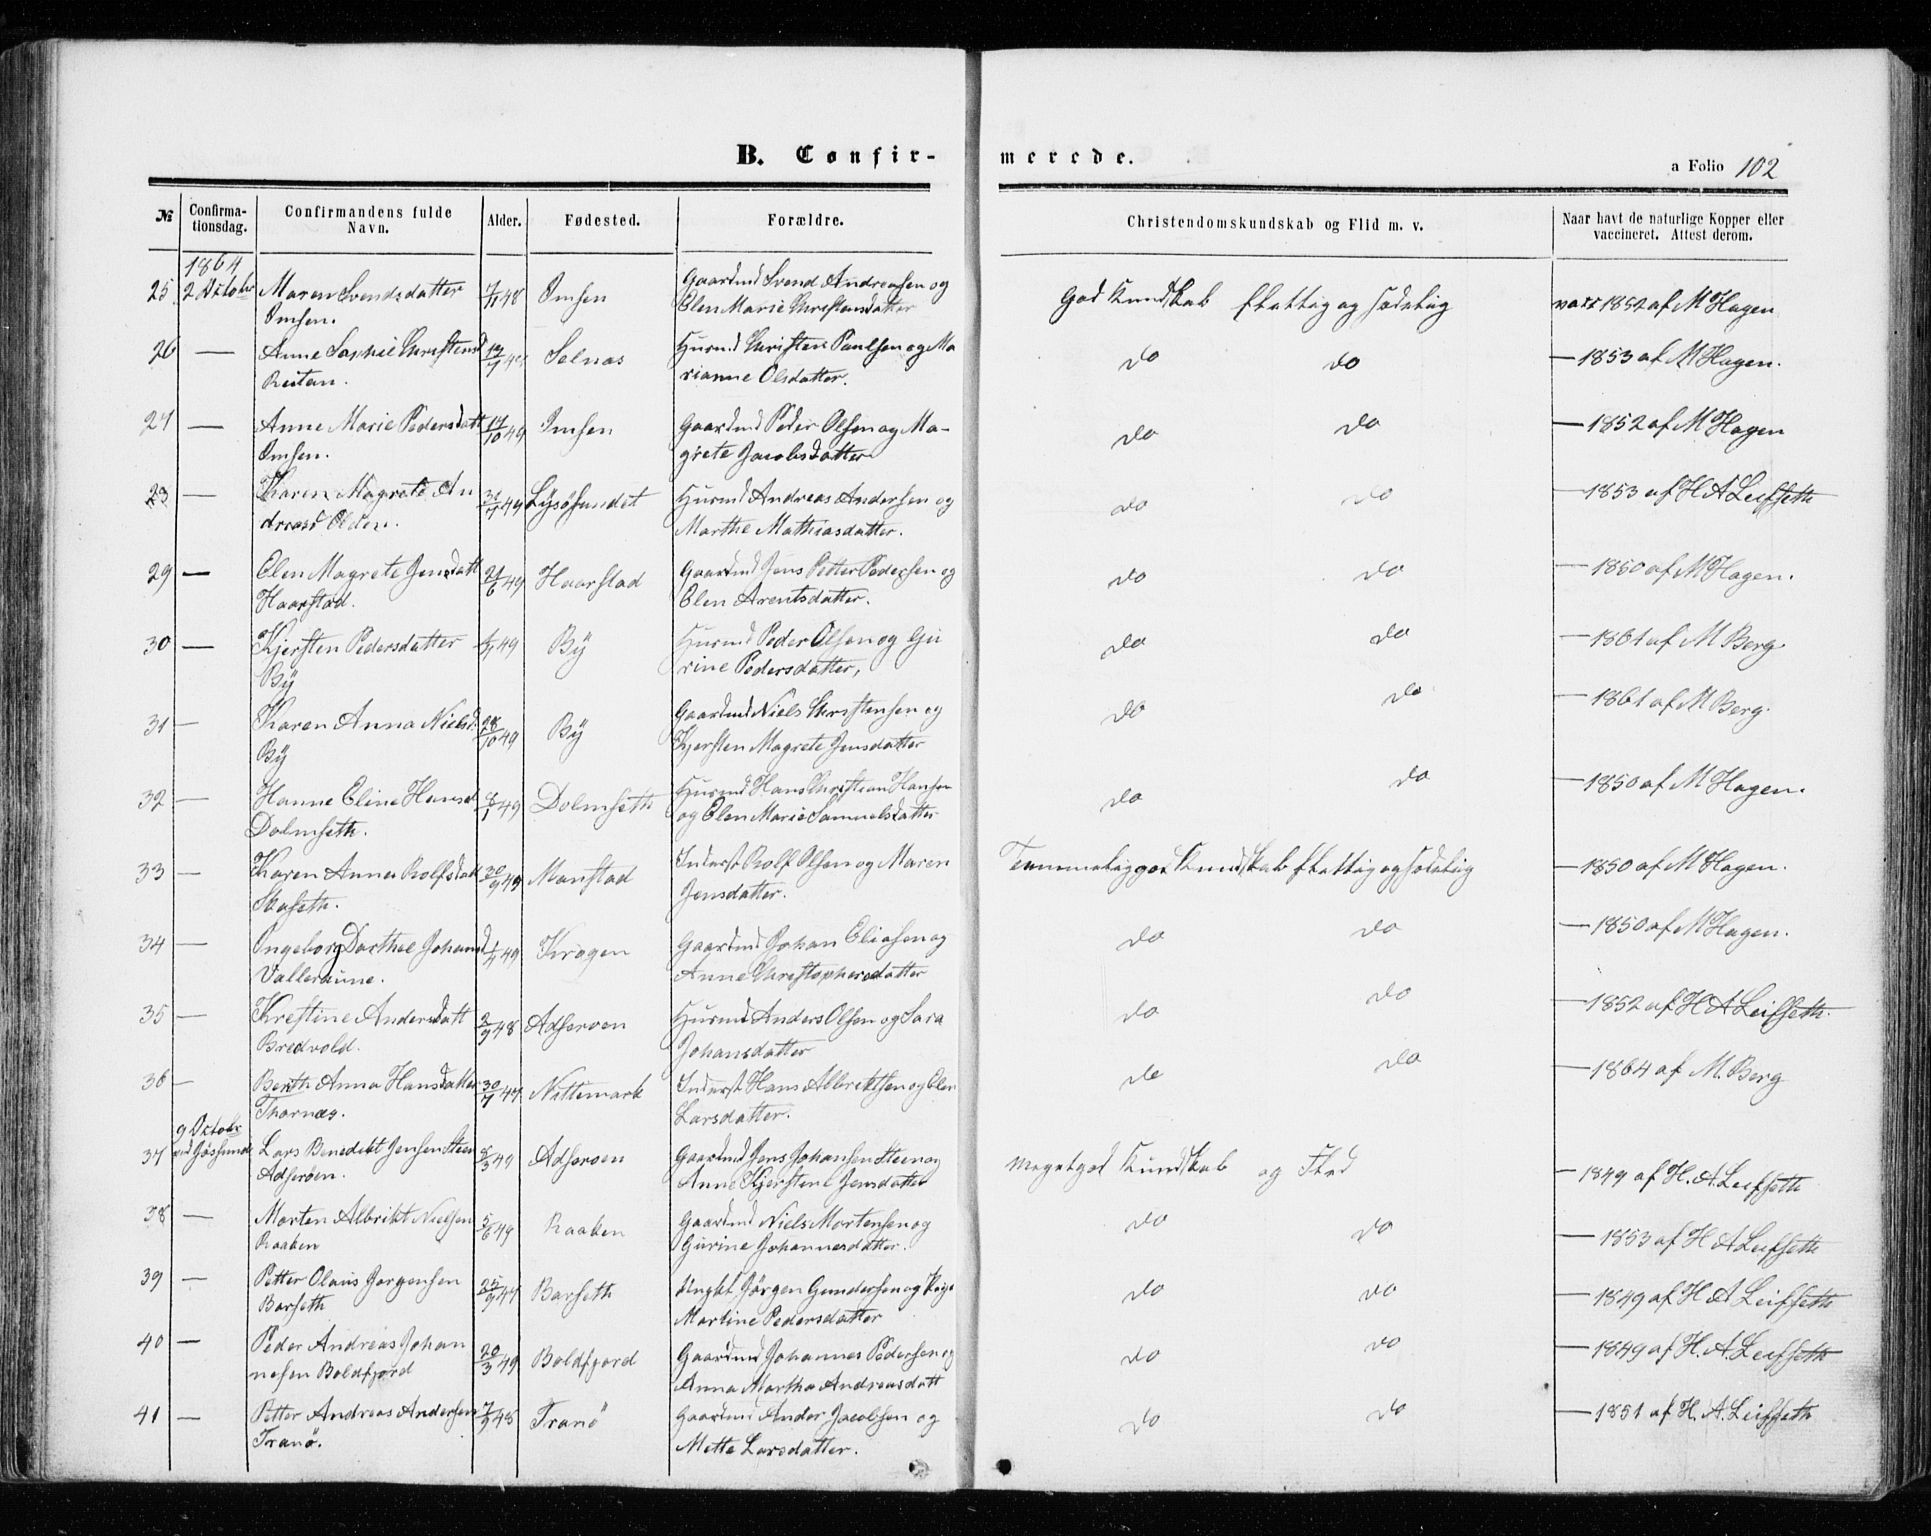 B. Confir-
merede.
a Folio 102
№
Confirma-
tionsdag.
Confirmandens fulde
Navn.
Alder.
Fødested.
Forældre.
Christendomskundskab og Flid m. v.
Naar havt de naturlige Kopper eller
vaccineret. Attest derom.
1864
25 2 Octobr Maren Svendsdatter 7/11 48 Imsen Gaardmd Svend Andreasen og God Kundskab flittig og sædelig vacc 1852 af M Hagen
Imsen. Elen Marie Christensdatter
26 — Anne Sophie Christensd Selnæs Husmd Christen Paulsen og Ma do do — 1853 af M Hagen.
Reitan. rianne Olsdatter.
27 — Anne Marie Pedersdatt 14/10 49 Imsen Gaardmd Peder Olsen og Ma- do do — 1852 af M Hagen
Imsen. grete Jacobsdatter
28 — Karen Magrete An 49 Lysøsundet Husmd Andreas Andersen og do do — 1853 af H A Leifseth
dreasd Olden. Marthe Mathiasdatter.
29 — Elen Magrete Jensdatt 21/6 49 Haarstad Gaardmd Jens Petter Pedersen og do do — 1850 af M Hagen.
Haarstad. Elen Arentsdatter.
30 — Kjersten Pedersdatter 49 By Husmd Peder Olsen og Gu do do — 1861 af M Berg.
By rine Pedersdatter,
31 — Karen Anna Nielsd. 28/10 49 By Gaardmd Niels Christensen og do do — 1861 af M Berg.
By Kjersten Magrete Jensdatter
32 — Hanne Eline Hansd 8/1 49 Dolmseth Husmd Hans Christian Hansen do do — 1850 af M Hagen.
Dolmseth. og Elen Marie Samuelsdatter
33 — Karen Anna Rolfsdatt 30/9 49 Monstad Inderst Rolf Olsen og Maren Temmelig god Kundskab flittig og sædelig — 1850 af M Hagen.
Skaseth. Jensdatter.
34 — Ingeborg Dorthea Johansd 49 Krogen Gaardmd Johan Eliasen og do do — 1850 af M Hagen.
Valleraune. Anne Christophersdatter
35 — Krestine Andersdatt 2/9 48 Adseroen Husmd Anders Olsen og Sara do do — 1852 af H A Leifseth.
Bredvold. Johansdatter
36 — Berth Anna Hansdatter 30/7 47 Nettemark Inderst Hans Albrektsen og Elen do do — 1864 af M. Berg
Thornæs. Larsdatter.
9 Octobr
37 ved Jøssund Lars Benedikt Jensen Steen 8/3 49 Adseroen Gaardmd Jens Johansen Steen og Meget god Kundskab og Flid — 1849 af H. A. Leifseth
Adserøen. Anne Kjerstine Jensdatter
38 — Morten Albrikt Nielsen 5/6 49 Raaken Gaardmd Niels Mortensen og do do — 1853 af H A Leifseth
Raaken Gurine Johannesdatter.
39 — Petter Olaus Jørgensen 25/9 47 Barseth Ungkl Jørgen Gundersen og Pige do do — 1849 af H A Leifseth
Barseth Martine Pedersdatter
40 — Peder Andreas Johan 20/3 49 Boldfjord Gaardmd Johannes Pedersen og do do — 1849 af H. A. Leifseth
nesen Boldfjord Anna Martha Andreasdatt
41 — Petter Andreas Andersen 7/9 48 Tranø Gaardmd Ander Jacobsen og do do — 1851 af H. A. Leifseth
Tranø. Mette Larsdatter.